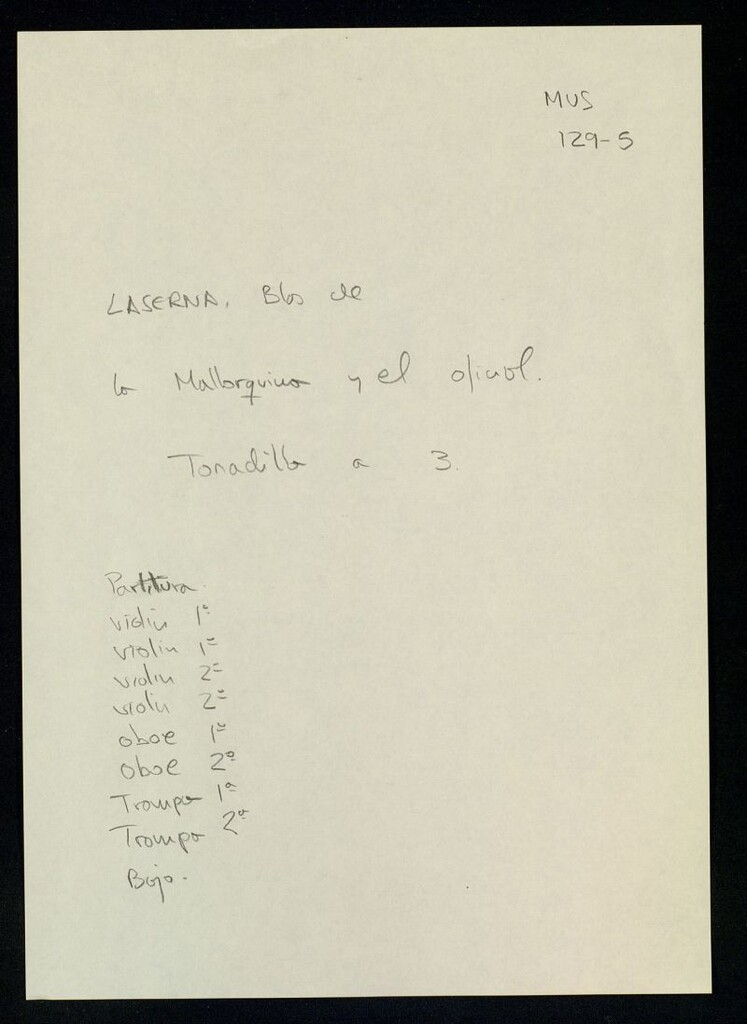 MUS
129-5
LASERNA, Blas de
La Mallorquina y el oficial.
Tonadilla a 3.
Partitura.
violin 1º
violin 1º
violin 2º
violin 2º
oboe 1º
oboe 2º
Trompa 1ª
Trompa 2ª
Bajo.